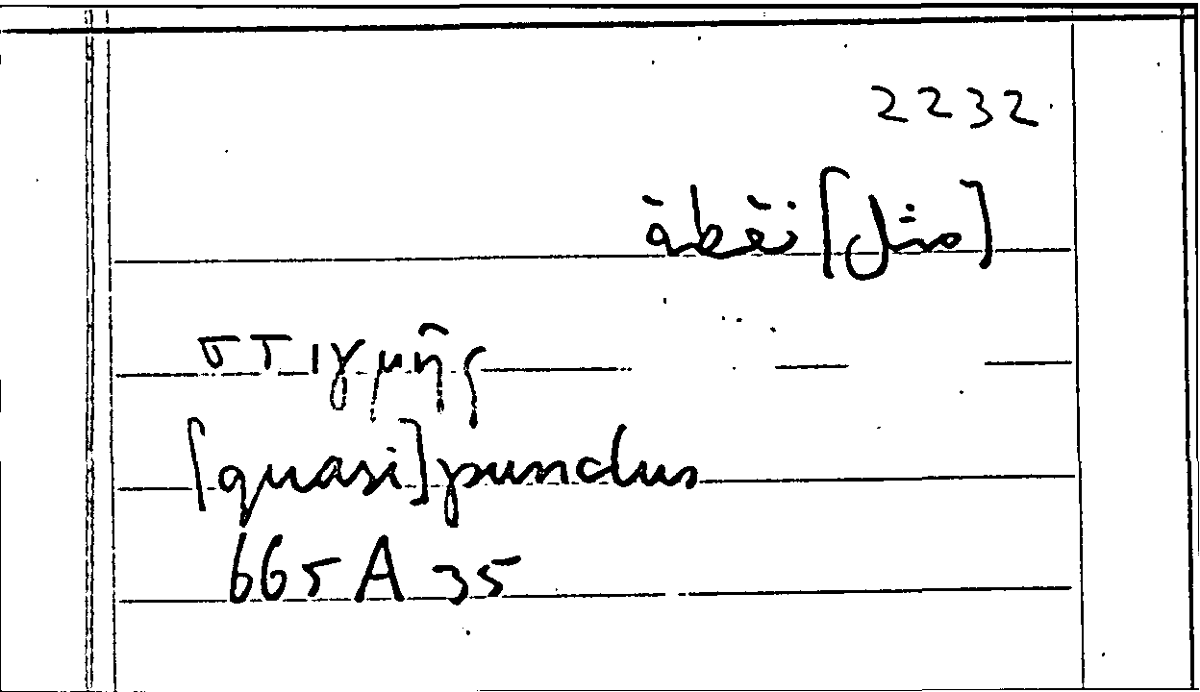 2232
[مثل] نقطة
στιγμῆς
[quasi] punctus
665 A 35